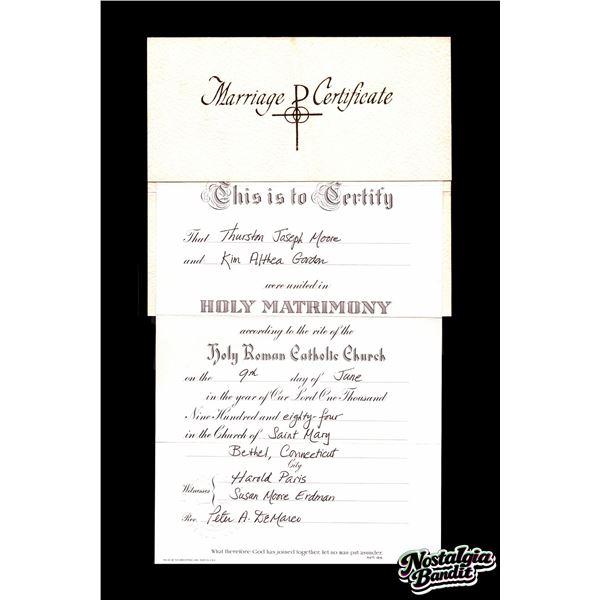 Marriage Certificate
This is to Certify
That Thurston Joseph Moore
and Kim Althea Gordon
were united in
HOLY MATRIMONY
according to the rite of the
Holy Roman Catholic Church
on the 9th day of June
in the year of Our Lord One Thousand
Nine Hundred and eighty-four
in the Church of Saint Mary
Bethel, Connecticut
City
Harold Paris
Witnesses
Susan Moore Erdman
Rev. Peter A. DeMarco
What therefore God has joined together, let no man put asunder.
Nostalgia
Bandit